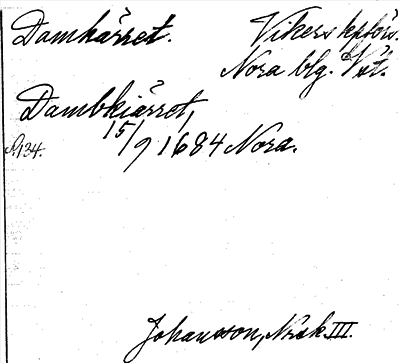 Damkärret. Vikers kpförs.
Nora blg. Vstl.
Dambkiärret,
15/9 1684 Nora.
Johansson, Norask. III.